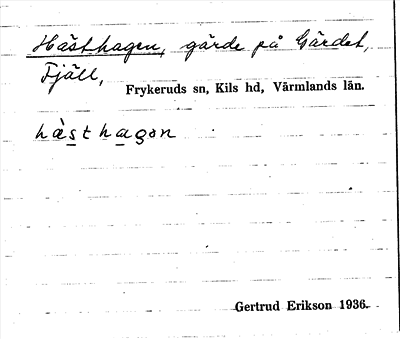 Hästhagen, gärde på Gärdet,
Fjäll,
Frykeruds sn, Kils hd, Värmlands län.
hàsthagən
Gertrud Erikson 1936.